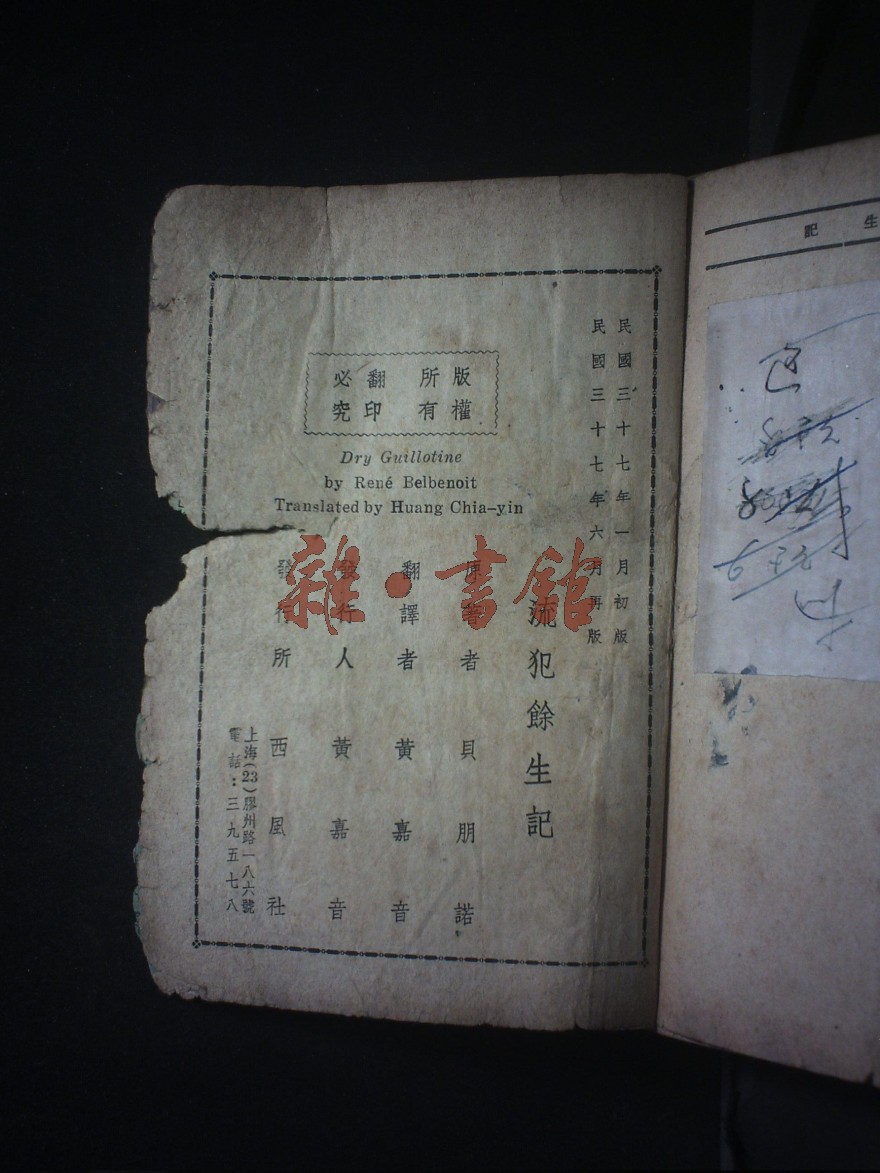 民國三十七年一月初版
民國三十七年六月再版
版權所有
翻印必究
Dry Guillotine
by René Belbenoit
Translated by Huang Chia-yin
流犯餘生記
原著者 貝朋諾
翻譯者 黃嘉音
發行人 黃嘉音
發行所 西風社
上海(23)膠州路一八六號
電話：三九五七八
雜·書館
生記